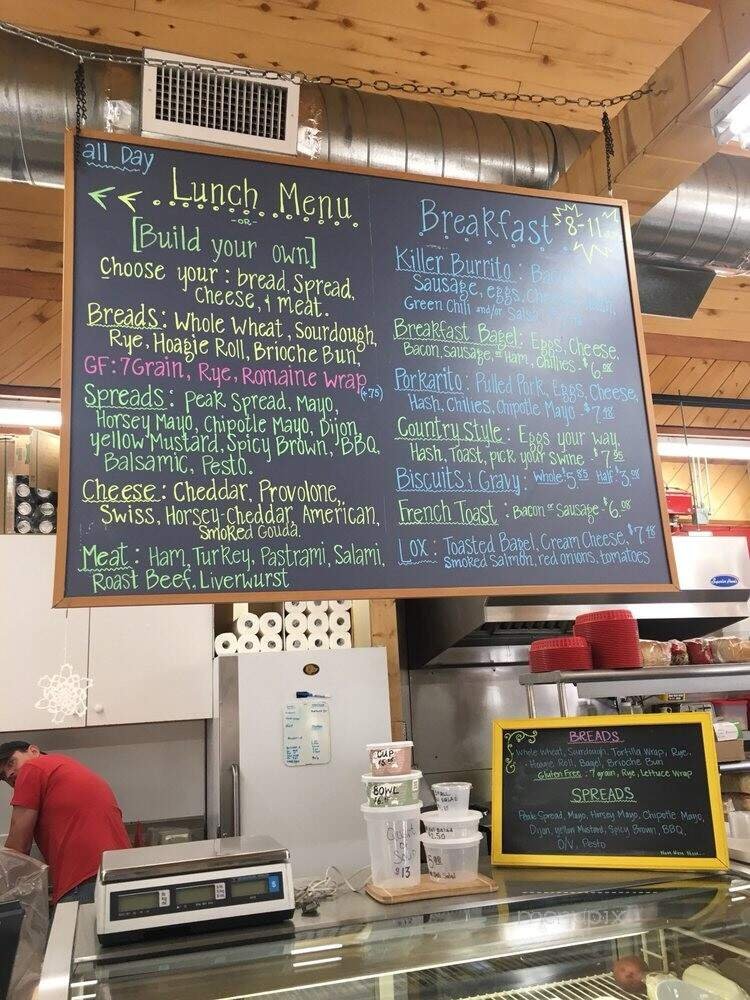 all Day
Lunch Menu
-OR-
[Build your own]
Choose your : bread, Spread,
Cheese, & Meat.
Breads: Whole Wheat, Sourdough,
Rye, Hoagie Roll, Brioche Bun
GF: 7Grain, Rye, Romaine Wrap
(+.75)
Spreads: Peak Spread, Mayo,
Horsey Mayo, Chipotle Mayo, Dijon,
yellow Mustard, Spicy Brown, BBQ,
Balsamic, Pesto.
Cheese: Cheddar, Provolone,
Swiss, Horsey-Cheddar, American,
Smoked Gouda.
Meat: Ham, Turkey, Pastrami, Salami,
Roast Beef, Liverwurst
Breakfast 8-11
Killer Burrito:
Sausage, eggs,
Green Chili and/or Salsa
Breakfast Bagel: Eggs, Cheese,
Bacon, sausage, or Ham, Chilies.
Porkarito: Pulled Pork, Eggs, Cheese,
Hash, Chilies, Chipotle Mayo
Country style: Eggs your way,
Hash, Toast, pick your swine
Biscuits & Gravy: Whole Half
French Toast: Bacon or Sausage
LOX: Toasted Bagel, Cream Cheese,
Smoked salmon, red onions, tomatoes
BREADS
Whole Wheat, Sourdough, Tortilla Wrap, Rye,
Hoagie Roll, Bagel, Brioche Bun
Gluten Free: 7 grain, Rye, Lettuce Wrap
SPREADS
Peak Spread, Mayo, Horsey Mayo, Chipotle Mayo,
Dijon, yellow Mustard, Spicy Brown, BBQ,
O/V, Pesto
CUP
BOWL
Quart
of
Soup
$13